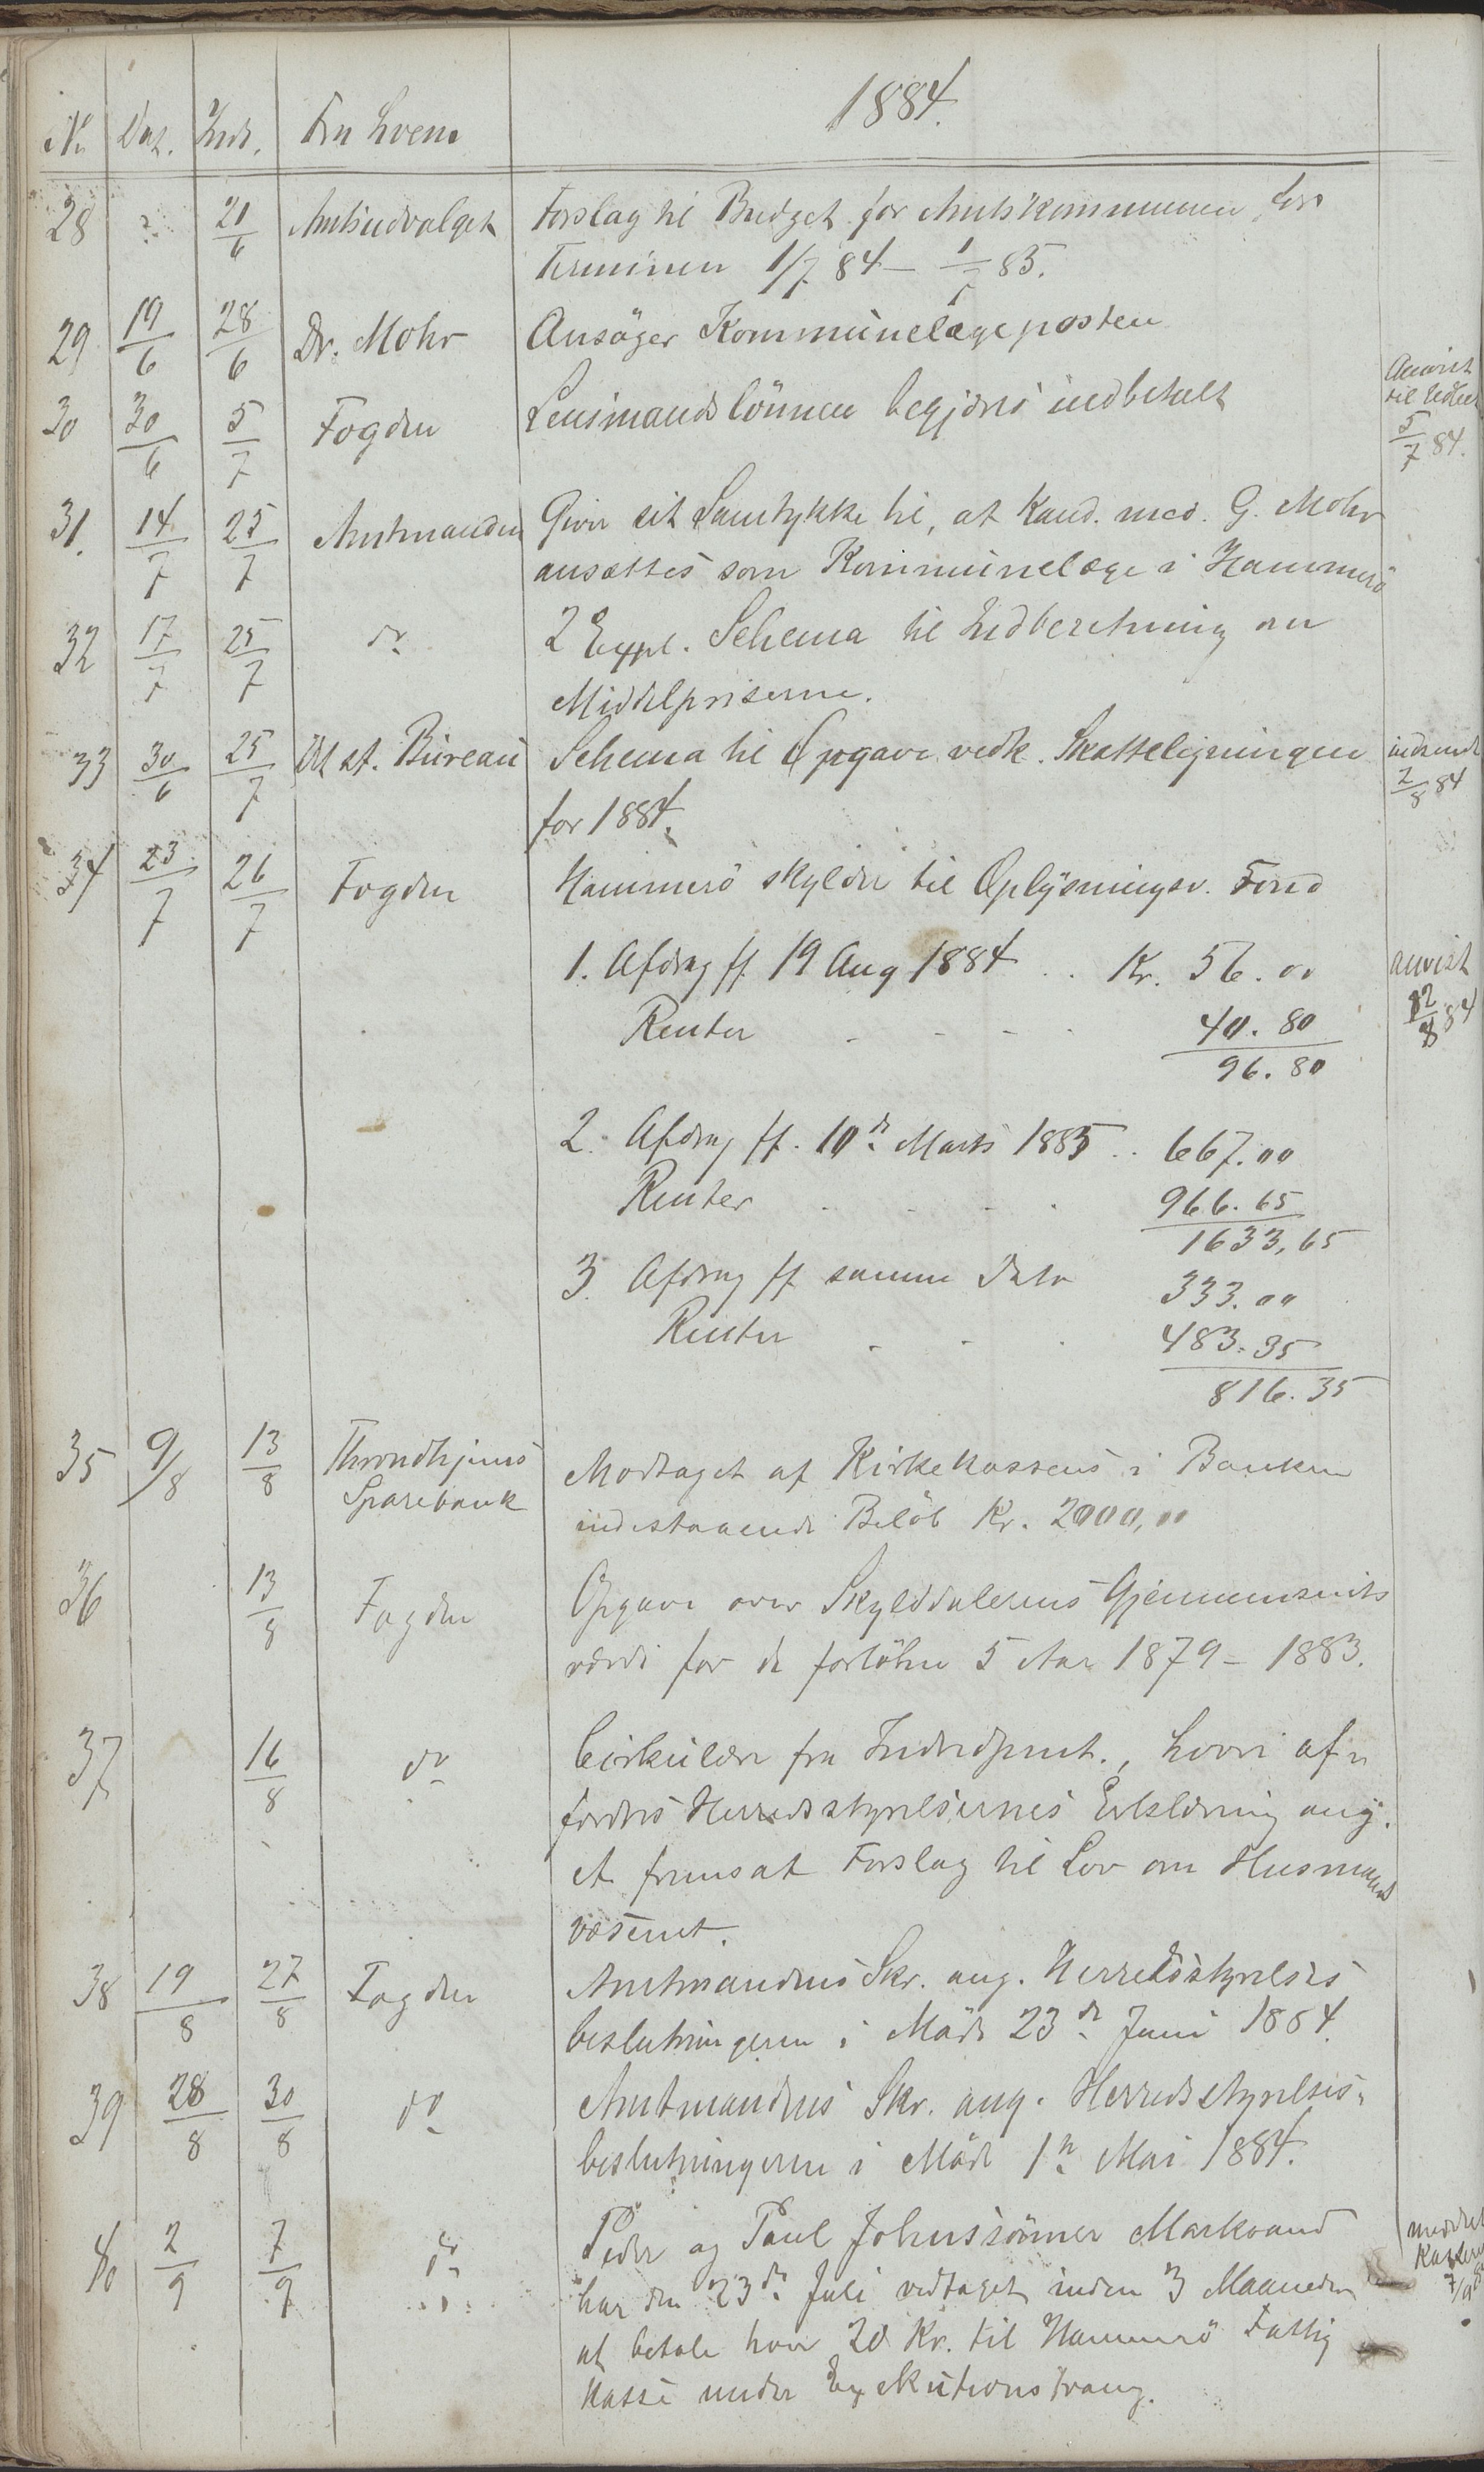 1884.
No Dat. Indk. Fra hvem
28 21/6 Amtsudvalget Forslag til Budget for Amtskommunen for
Terminen 1/7 84 – 1/7 85.
29 19/6 28/6 Dr. Mohr Ansöger Kommunelægeposten
30 30/6 5/7 Fogden Lensmandslönnen begjæres indbetalt
Anvist
til Udbet
5/7 84.
31. 14/7 25/7 Amtmanden Giver sit Samtykke til, at Kand. med. G. Mohr
ansættes som Kommunelæge i Hammerö
32 17/7 25/7 do 2 Expl. Schema til Indberetning om
Middelpriserne.
33 30/6 25/7 Det st. Büreau Schema til Opgave vedk. Skatteligningen
for 1884.
indsendt
2/8 84
34 23/7 26/7 Fogden Hammerö skylder til Oplysningsv. Fond
1. Afdrag ff. 19 Aug 1884 .. Kr. 56.00
Renter - - - - 40.80
96.80
anvist
12/8 84
2. Afdrag ff. 10de Marts 1885 .. 667.00
Renter . . . . 966.65
1633,65
3 Afdrag ff samme Dato 333.00
Renter - - . 483.35
816.35
35 9/8 13/8 Throndhjems
Sparebank
Modtaget af Kirkekassens i Banken
indestaaende Belöb Kr. 2000,00
36 13/8 Fogden Opgave over Skylddalerens Gjennemsnits
værdi for de forløbne 5 Aar 1879 – 1883.
37 16/8 do Cirkulære fra Indredpmt., hvori af-
fordres Herredsstyrelsernes Erklæring ang.
et fremsat Forslag til Lov om Husmands
væsenet.
38 19/8 27/8 Fogden Amtmandens Skr. ang. Herredsstyrelses
beslutningerne i Möde 23de Juni 1884.
39 28/8 30/8 do Amtmandens Skr. ang. Herredsstyrelses-
beslutningerne i Möde 1ste Mai 1884.
40 2/9 7/9 do Peder og Paul Johnssönner Markvand
har den 23de Juli vedtaget inden 3 Maaneder
at betale hver 20 Kr. til Hammerö Fattig
kasse under Exekutionstvang.
meddelt
Kasserer
7/9 84